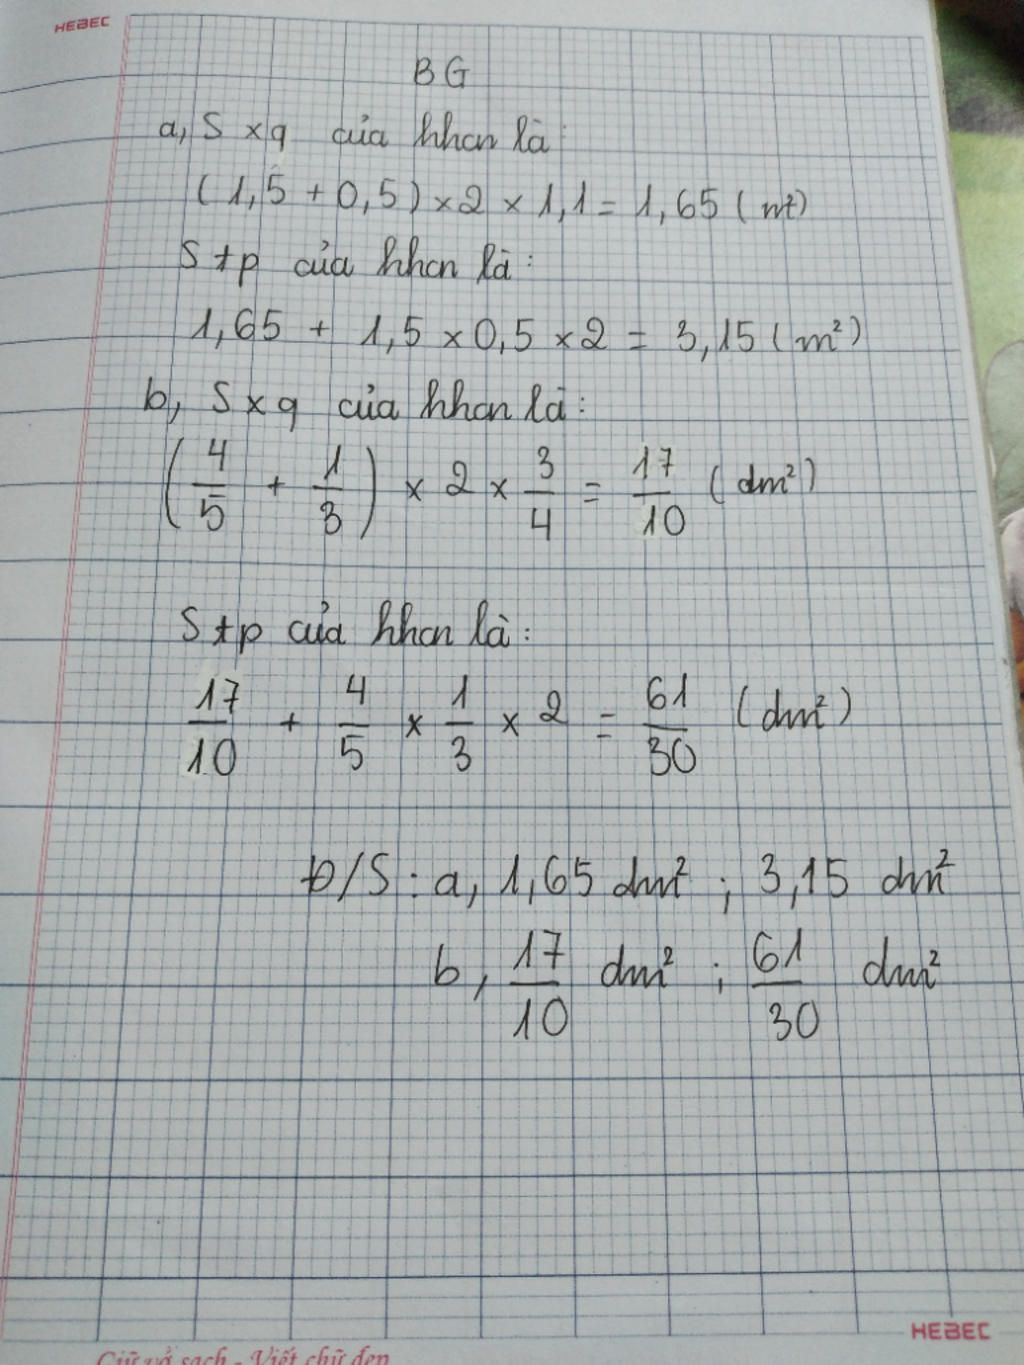 HEBEC
BG
a, S xq của hhcn là:
(1,5 + 0,5) × 2 × 1,1 = 1,65 (m²)
S tp của hhcn là:
1,65 + 1,5 × 0,5 × 2 = 3,15 (m²)
b, S xq của hhcn là:
(4/5 + 1/3) × 2 × 3/4 = 17/10 (dm²)
S tp của hhcn là:
17/10 + 4/5 × 1/3 × 2 = 61/30 (dm²)
Đ/S: a, 1,65 dm² ; 3,15 dm²
b, 17/10 dm² ; 61/30 dm²
HEBEC
Giữ vở sạch - Viết chữ đẹp